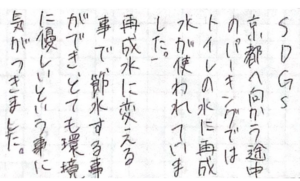 SDGs
京都へ向かう途中
のパーキングでは
トイレの水に再成
水が使われていま
した。
再成水に変える
事で節水する事
ができとても環境
に優しいという事に
気がつきました。